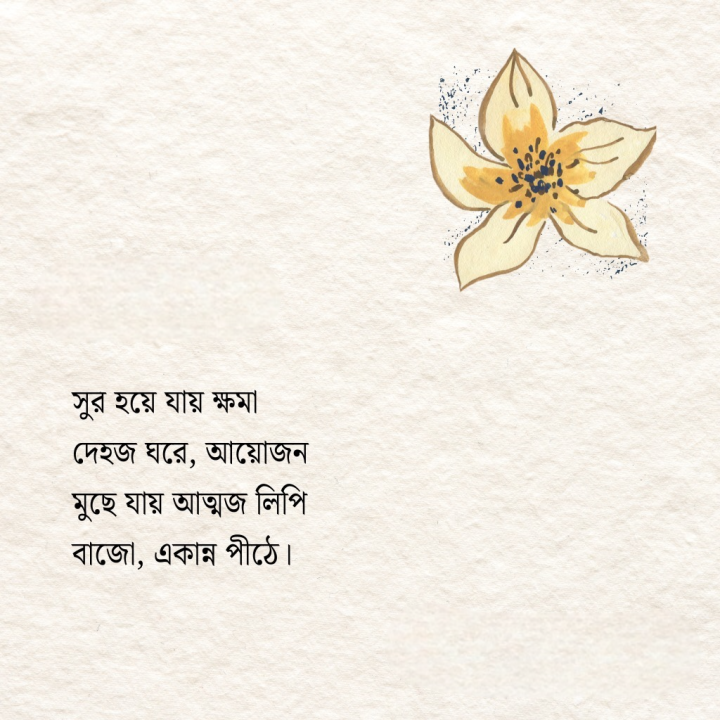 সুর হয়ে যায় ক্ষমা
দেহজ ঘরে, আয়োজন
মুছে যায় আত্মজ লিপি
বাজো, একান্ন পীঠে।